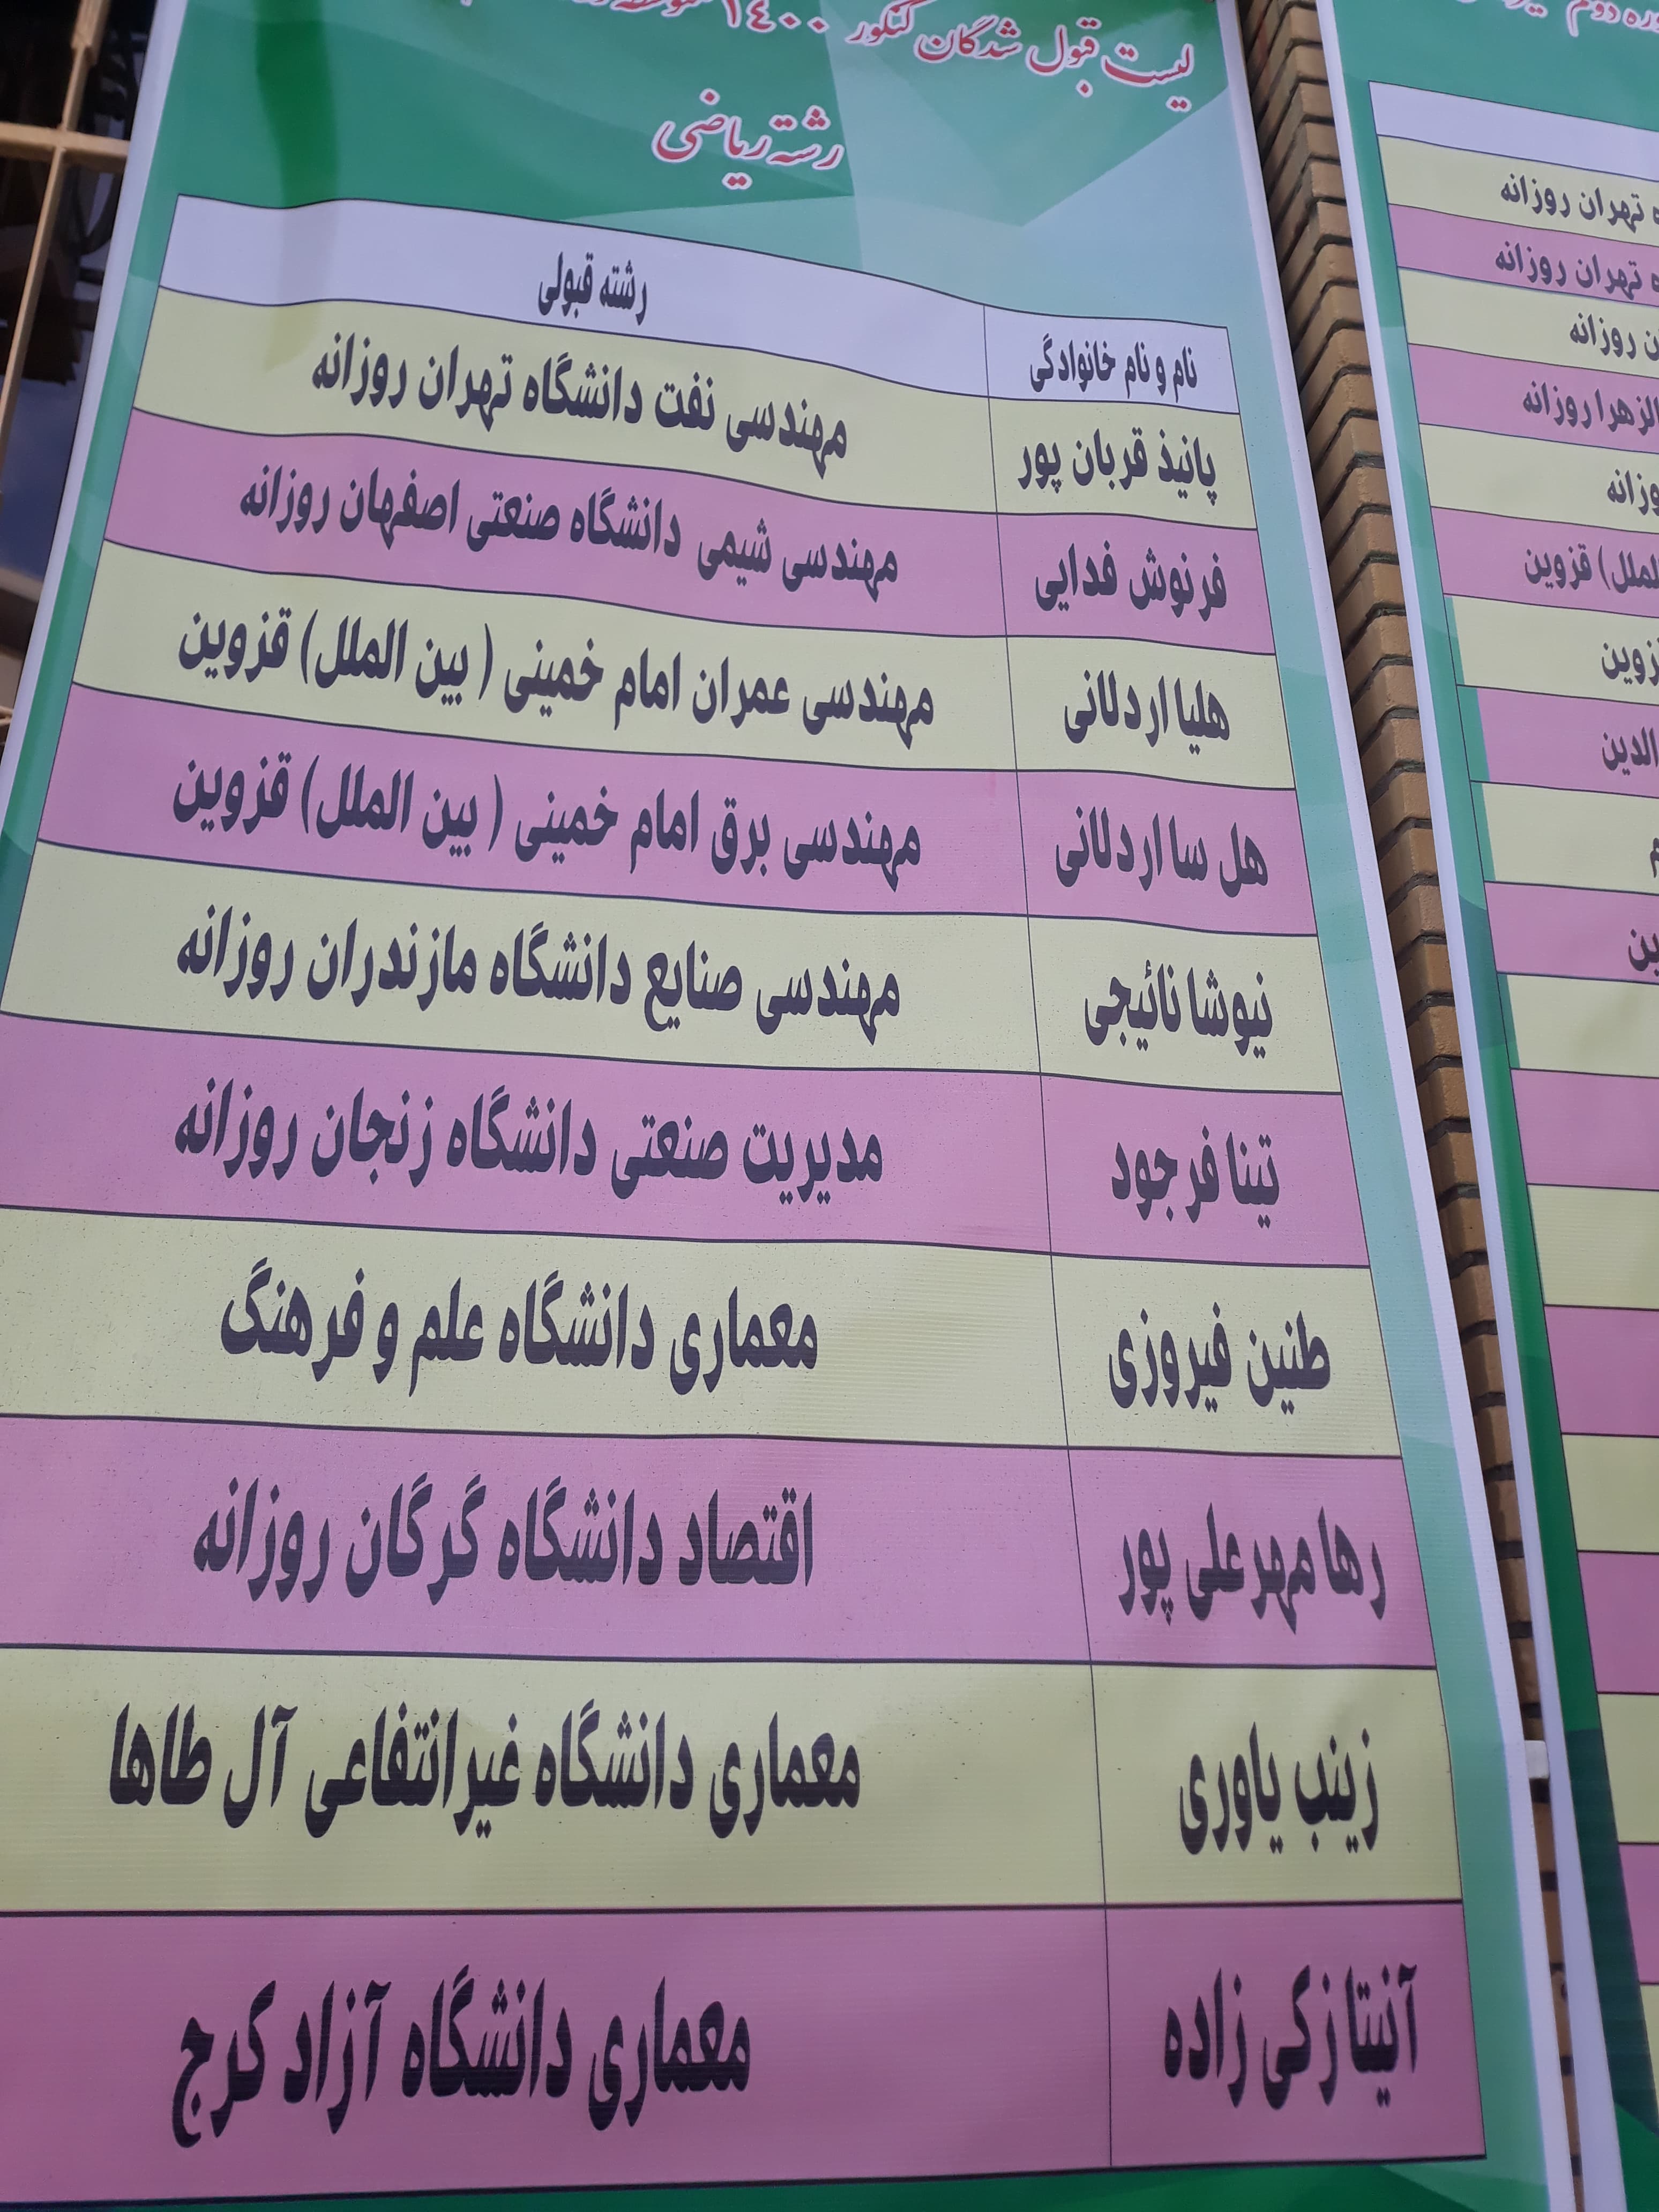 لیست قبول شدگان کنکور ۱۴۰۰
رشته ریاضی
نام و نام خانوادگی رشته قبولی
پانیذ قربان پور مهندسی نفت دانشگاه تهران روزانه
فرنوش فدایی مهندسی شیمی دانشگاه صنعتی اصفهان روزانه
هلیا اردلانی مهندسی عمران امام خمینی ( بین الملل) قزوین
هل سا اردلانی مهندسی برق امام خمینی ( بین الملل) قزوین
نیوشا نائیجی مهندسی صنایع دانشگاه مازندران روزانه
تینا فرجود مدیریت صنعتی دانشگاه زنجان روزانه
طنین فیروزی معماری دانشگاه علم و فرهنگ
رها مهرعلی پور اقتصاد دانشگاه گرگان روزانه
زینب یاوری معماری دانشگاه غیرانتفاعی آل طاها
آنیتا زکی زاده معماری دانشگاه آزاد کرج
دوم
تهران روزانه
تهران روزانه
روزانه
الزهرا روزانه
قزوین
الدین